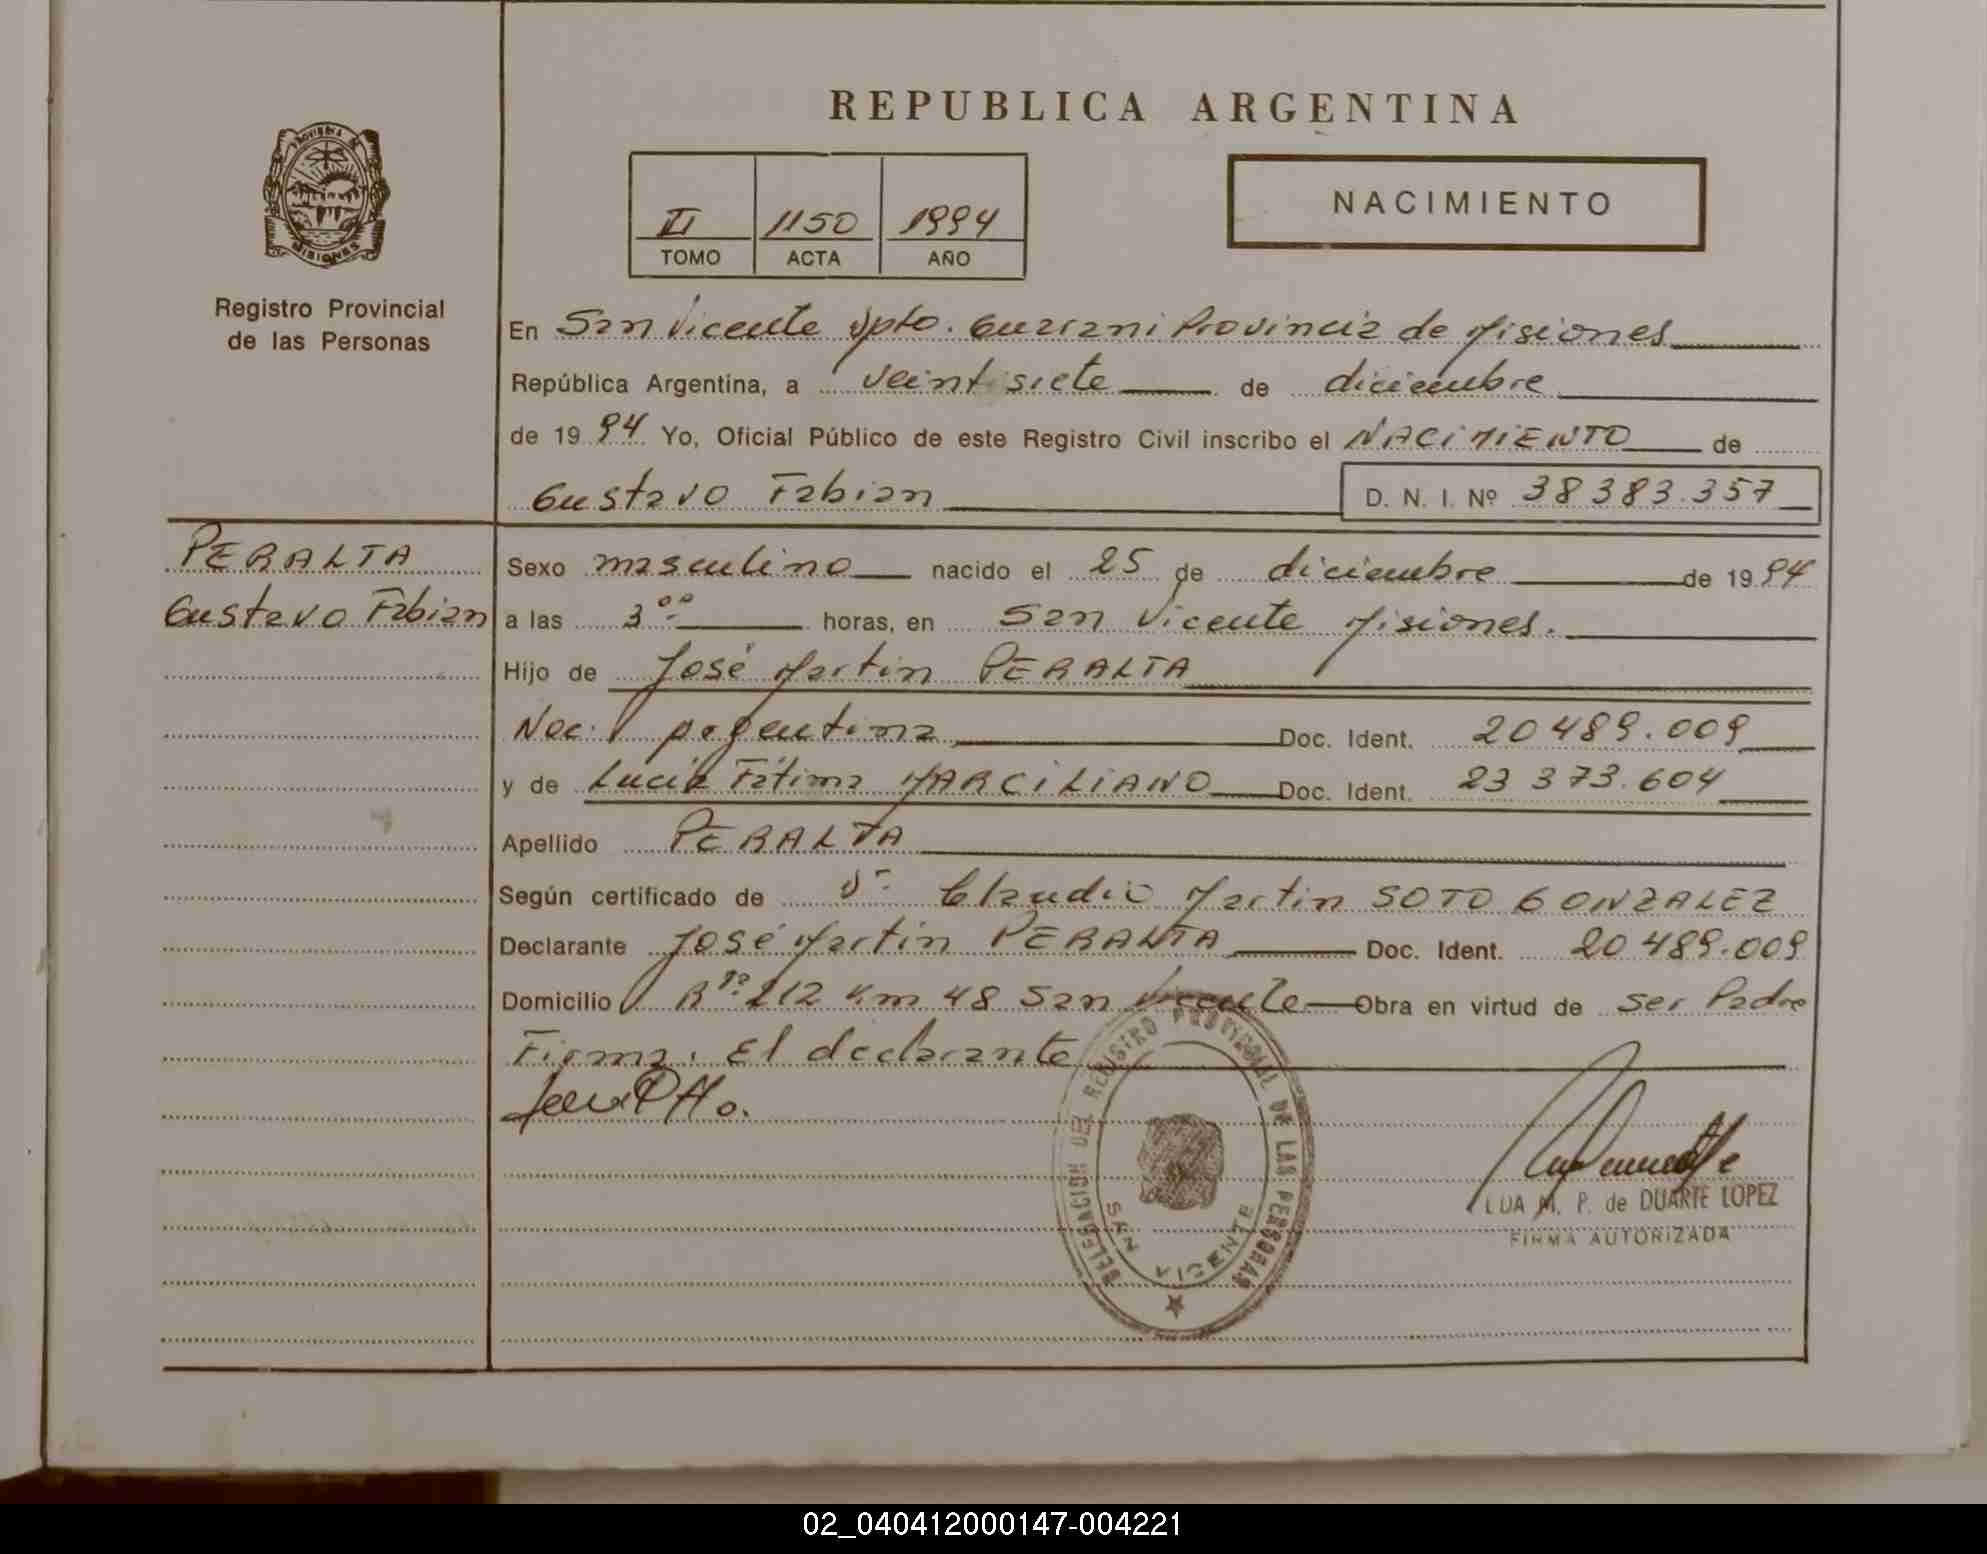 REPUBLICA ARGENTINA
PROVINCIA DE MISIONES
Registro Provincial
de las Personas
II 1150 1994
TOMO ACTA AÑO
NACIMIENTO
En San Vicente Dpto. Guarani Provincia de Misiones
República Argentina, a veintisiete de diciembre
de 1994 Yo, Oficial Público de este Registro Civil inscribo el NACIMIENTO de
Gustavo Fabian D. N. I. Nº 38383.357
PERALTA
Gustavo Fabian
Sexo masculino nacido el 25 de diciembre de 1994
a las 3:00 horas, en San Vicente Misiones.
Hijo de José Martin PERALTA
Nac. Argentina Doc. Ident. 20489.009
y de Lucía Fátima MARCILIANO Doc. Ident. 23 373.604
Apellido PERALTA
Según certificado de Dr. Claudio Martin SOTO GONZALEZ
Declarante José Martin PERALTA Doc. Ident. 20489.009
Domicilio Rta. 212 Km 48 San Vicente Obra en virtud de ser Padre
Firma. El declarante
DELEGACION DEL REGISTRO PROVINCIAL DE LAS PERSONAS
SAN VICENTE
M. P. de DUARTE LOPEZ
FIRMA AUTORIZADA
02_040412000147-004221